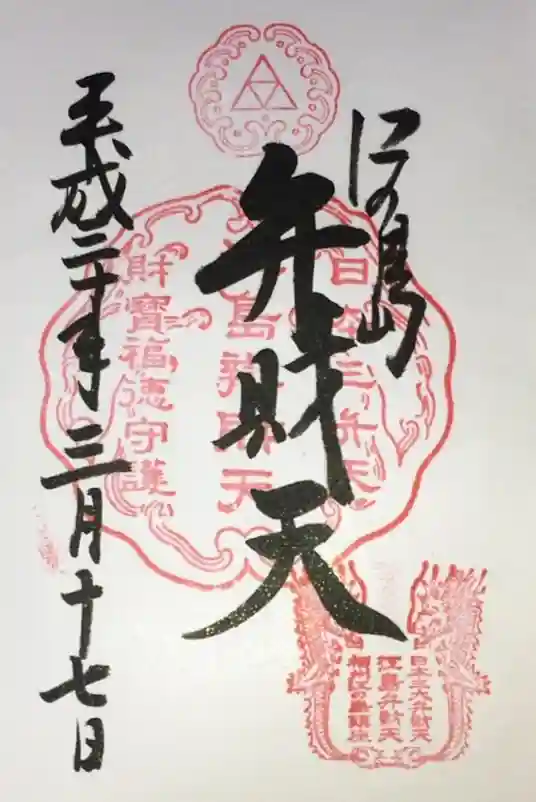 江の島
弁財天
平成二十年三月十七日
日本三弁天
江島弁財天
財寶福徳守護
日本三大弁財天
江島弁財天